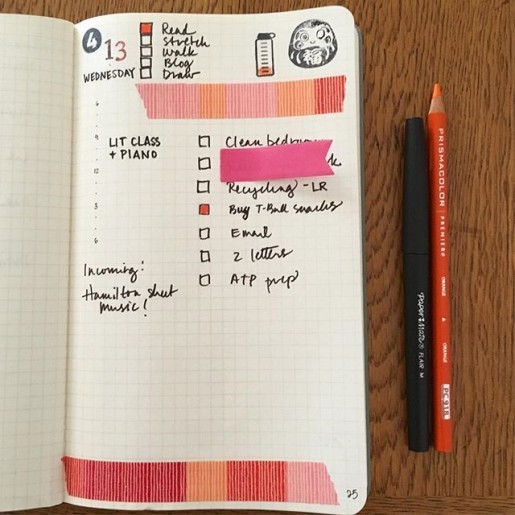 4
13
WEDNESDAY
Read
Stretch
Walk
Blog
Draw
福
6
9
12
3
6
LIT CLASS
+ PIANO
Clean bedroom
Recycling - LR
Buy T-Ball snacks
Email
2 letters
ATP prep
Incoming:
Hamilton sheet
music!
25
Paper Mate FLAIR M
PRISMACOLOR
PREMIER
ORANGE
ORANGE